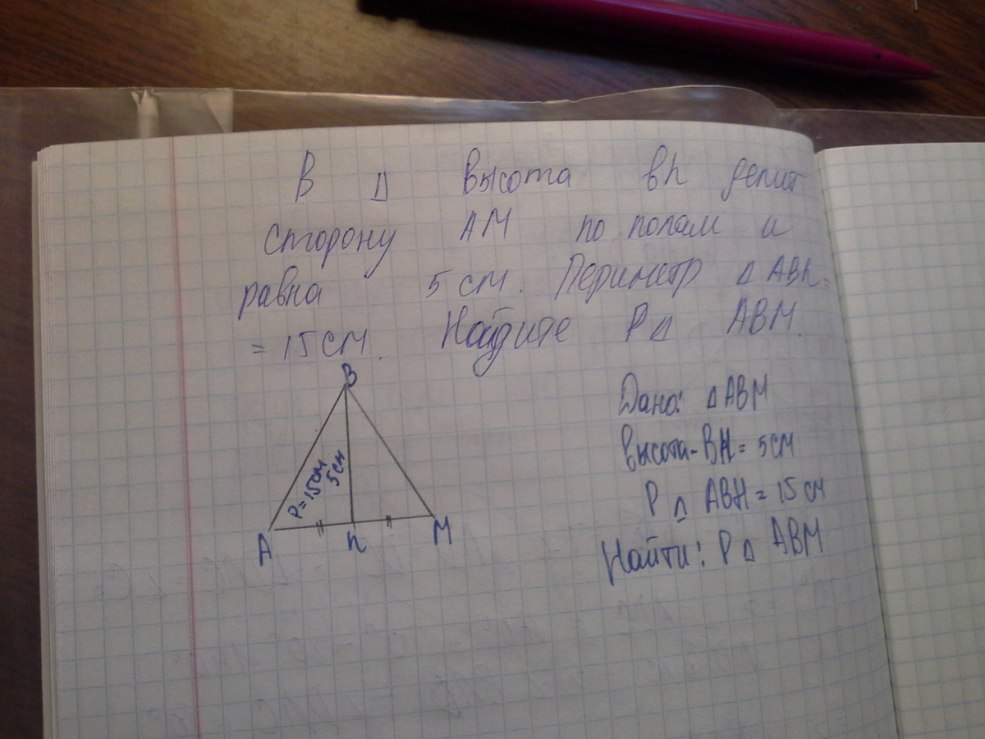 В Δ высота вh делит
сторону АМ по полам и
равна 5 см. Периметр Δ АВh.
= 15 см. Найдите Р Δ АВМ.
В
Р=15см
5см
А
h
М
Дано: Δ АВМ
высота-ВН = 5см
Р Δ АВН = 15 см
Найти: Р Δ АВМ